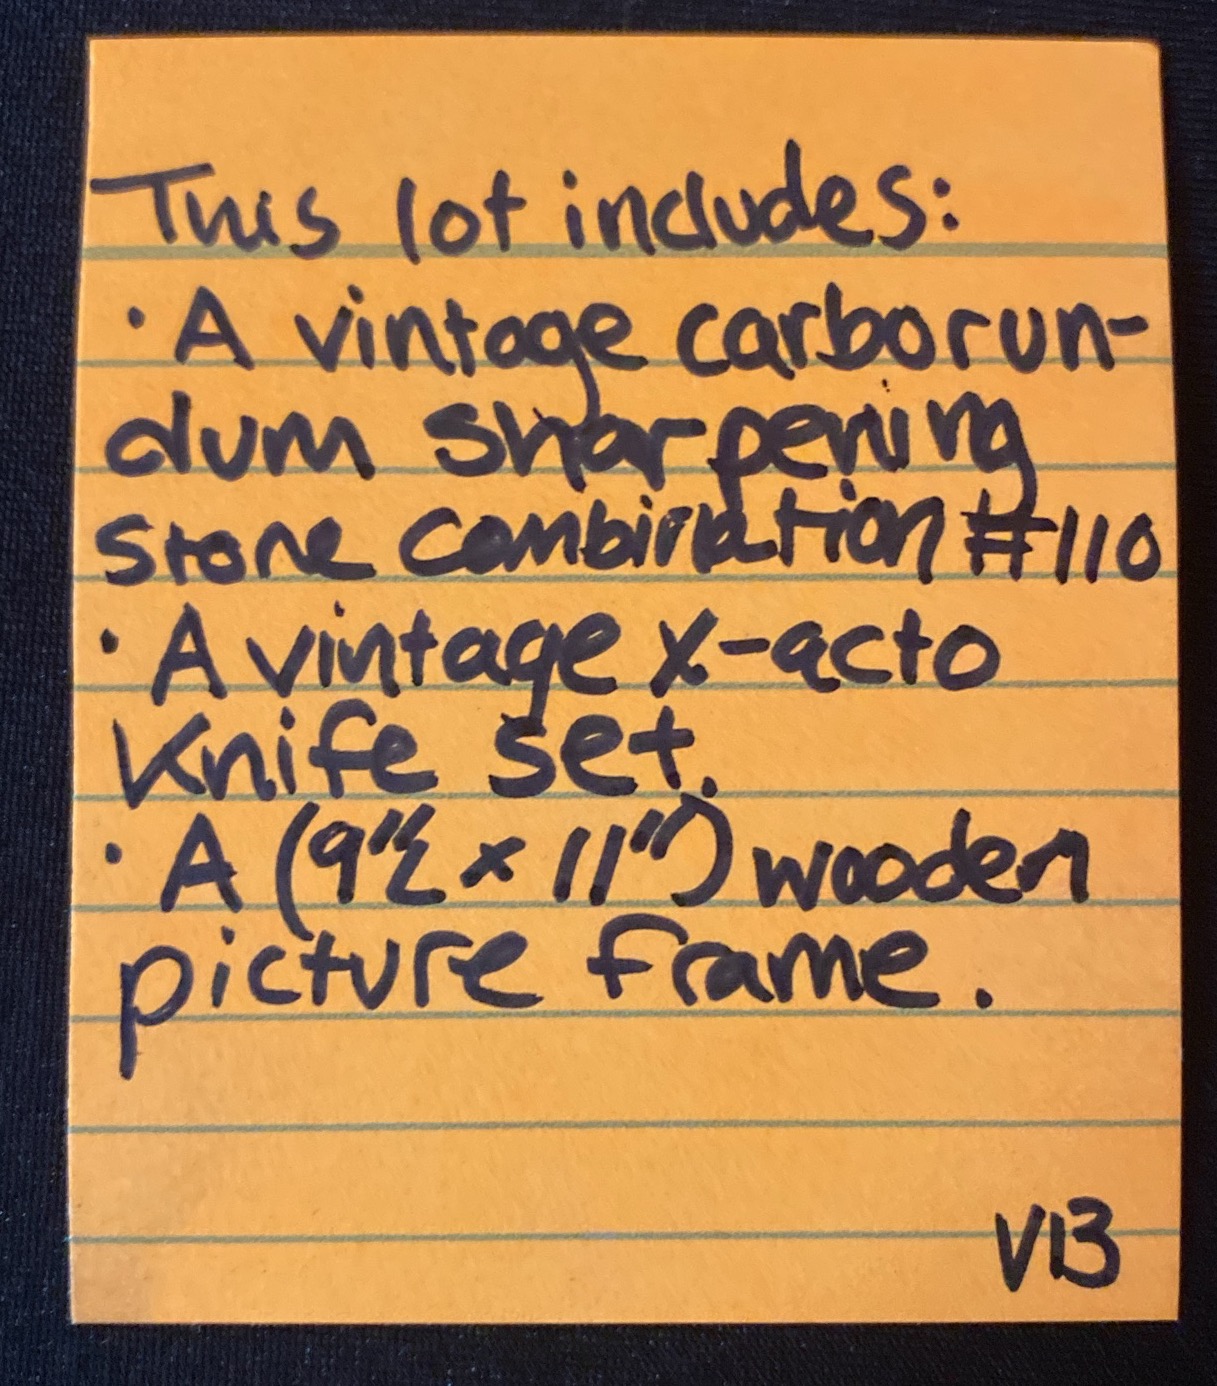 This lot includes:
· A vintage carborun-
dum sharpening
stone combination #110
· A vintage x-acto
Knife set.
· A (9"½ x 11") wooden
picture frame.
V13